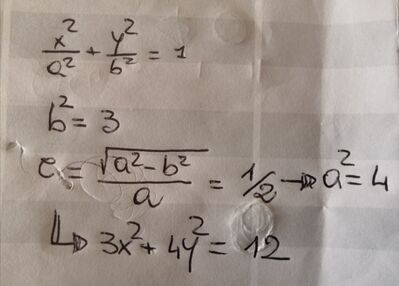 x²/a² + y²/b² = 1
b² = 3
e = √(a²-b²)/a = 1/2 → a² = 4
↳ 3x² + 4y² = 12